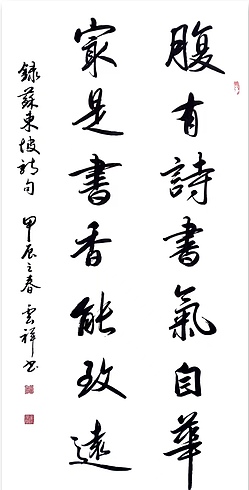 腹有詩書氣自華
最是書香能致遠
録蘇東坡詩句 甲辰之春 雲祥书